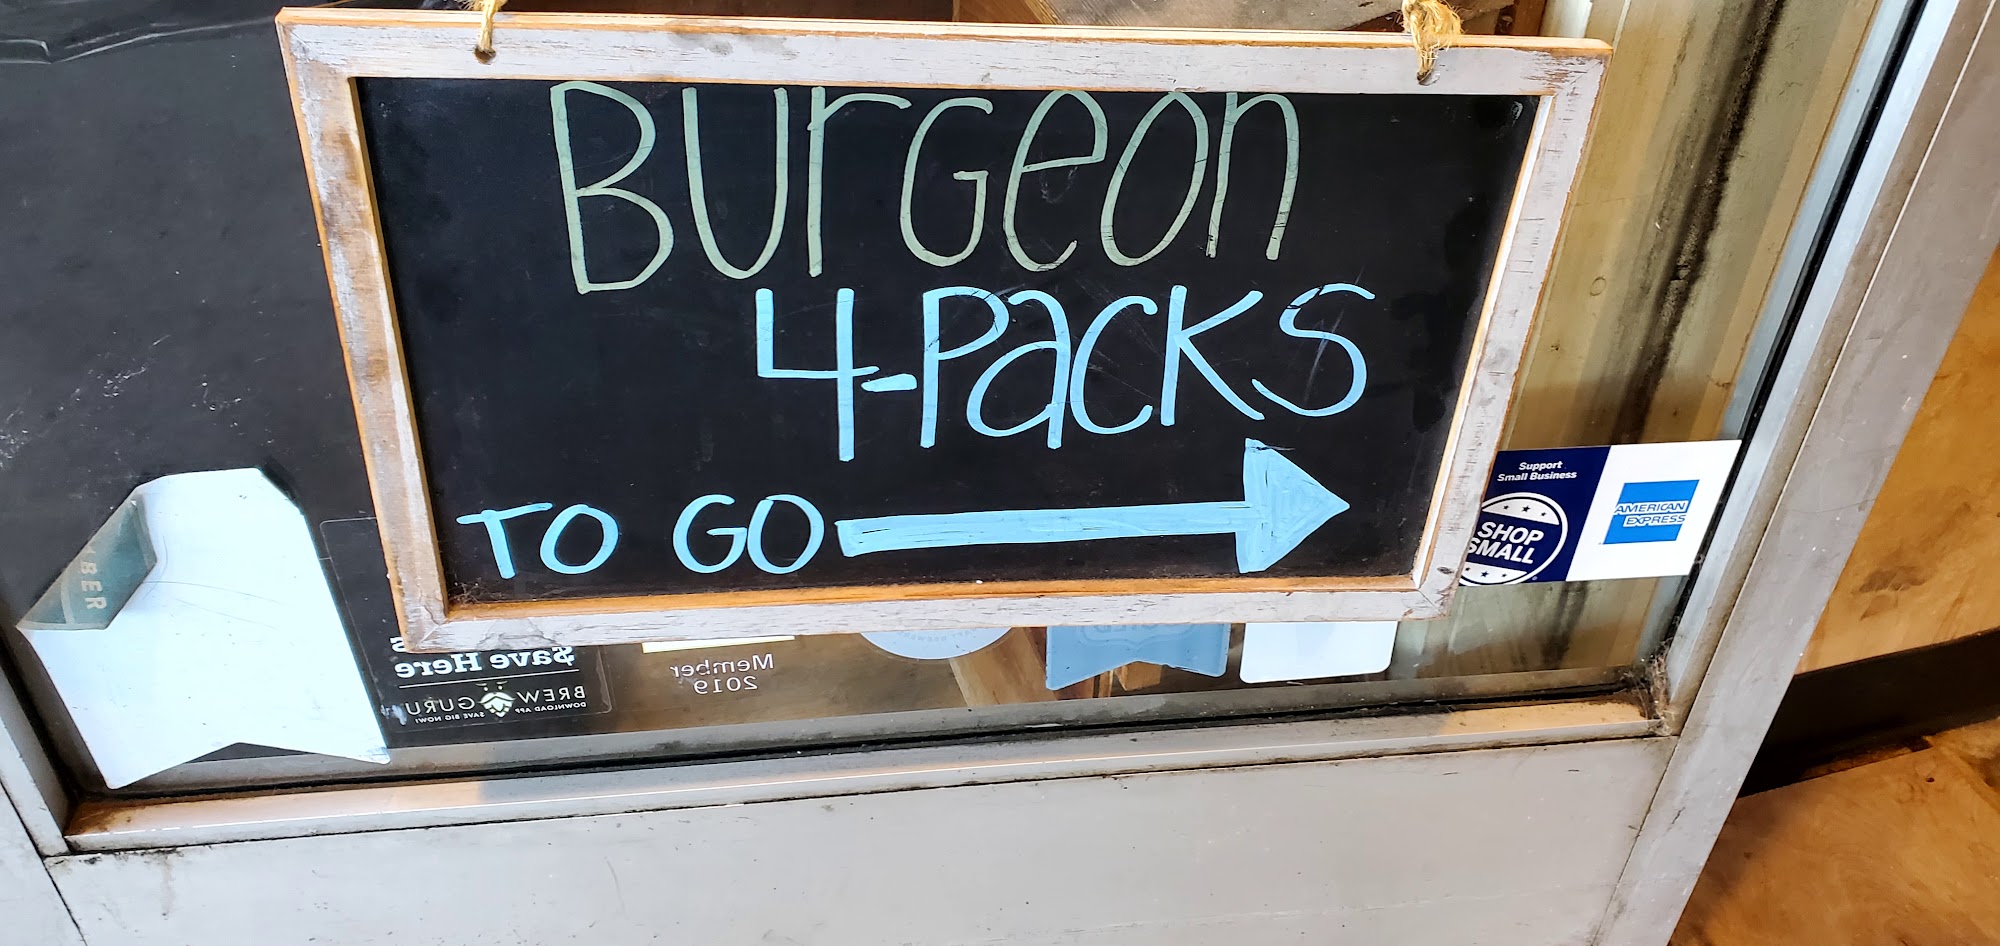 BUrGeon
4-PacKS
TO GO
Support
Small Business
SHOP
SMALL
AMERICAN
EXPRESS
BER
$ave Here
BREW GURU
DOWNLOAD APP SAVE BIG NOW!
Member
2019